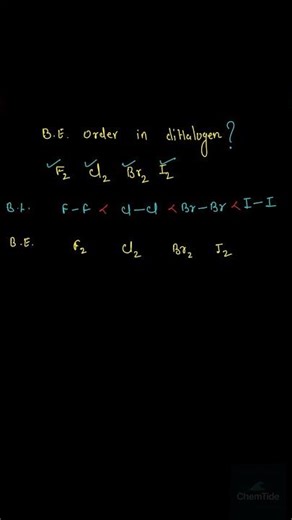 B.E. order in diHalogen?
F₂ Cl₂ Br₂ I₂
B.L. F-F < Cl-Cl < Br-Br < I-I
B.E. F₂ Cl₂ Br₂ I₂
ChemTide